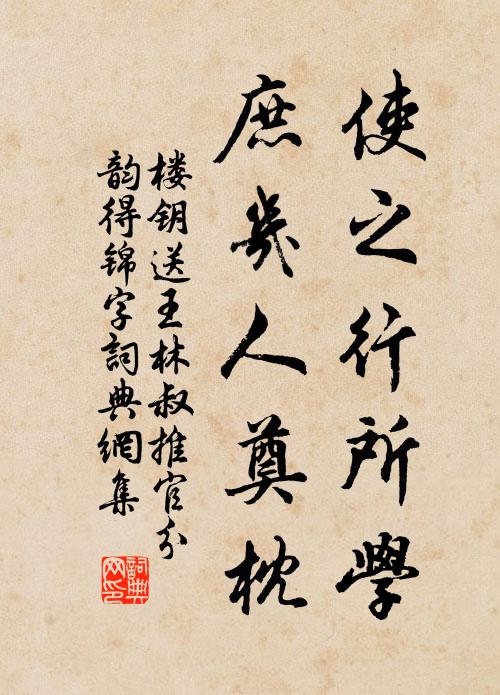 使之行所學
庶幾人奠枕
楼钥送王林叔推官分
韵得锦字詞典網集
詞典
网印